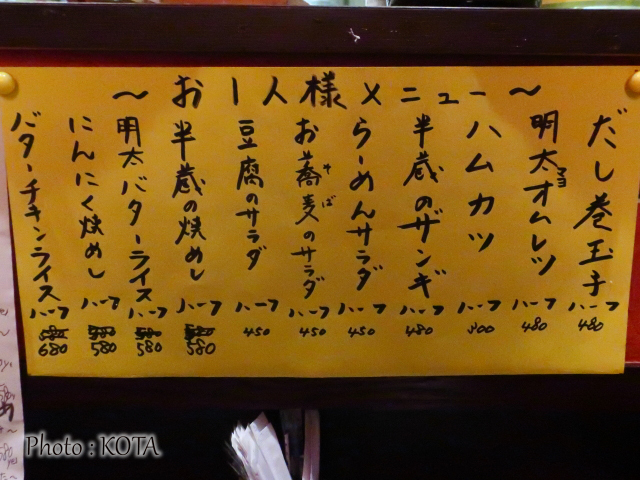 〜お一人様メニュー〜
だし巻玉子 ハーフ 480
明太マヨオムレツ ハーフ 480
ハムカツ ハーフ 300
半蔵のザンギ ハーフ 480
らーめんサラダ ハーフ 450
お蕎麦そばのサラダ ハーフ 450
豆腐のサラダ ハーフ 450
半蔵の焼めし ハーフ 580
明太バターライス ハーフ 580
にんにく焼めし ハーフ 580
バターチキンライス ハーフ 680
Photo : KOTA